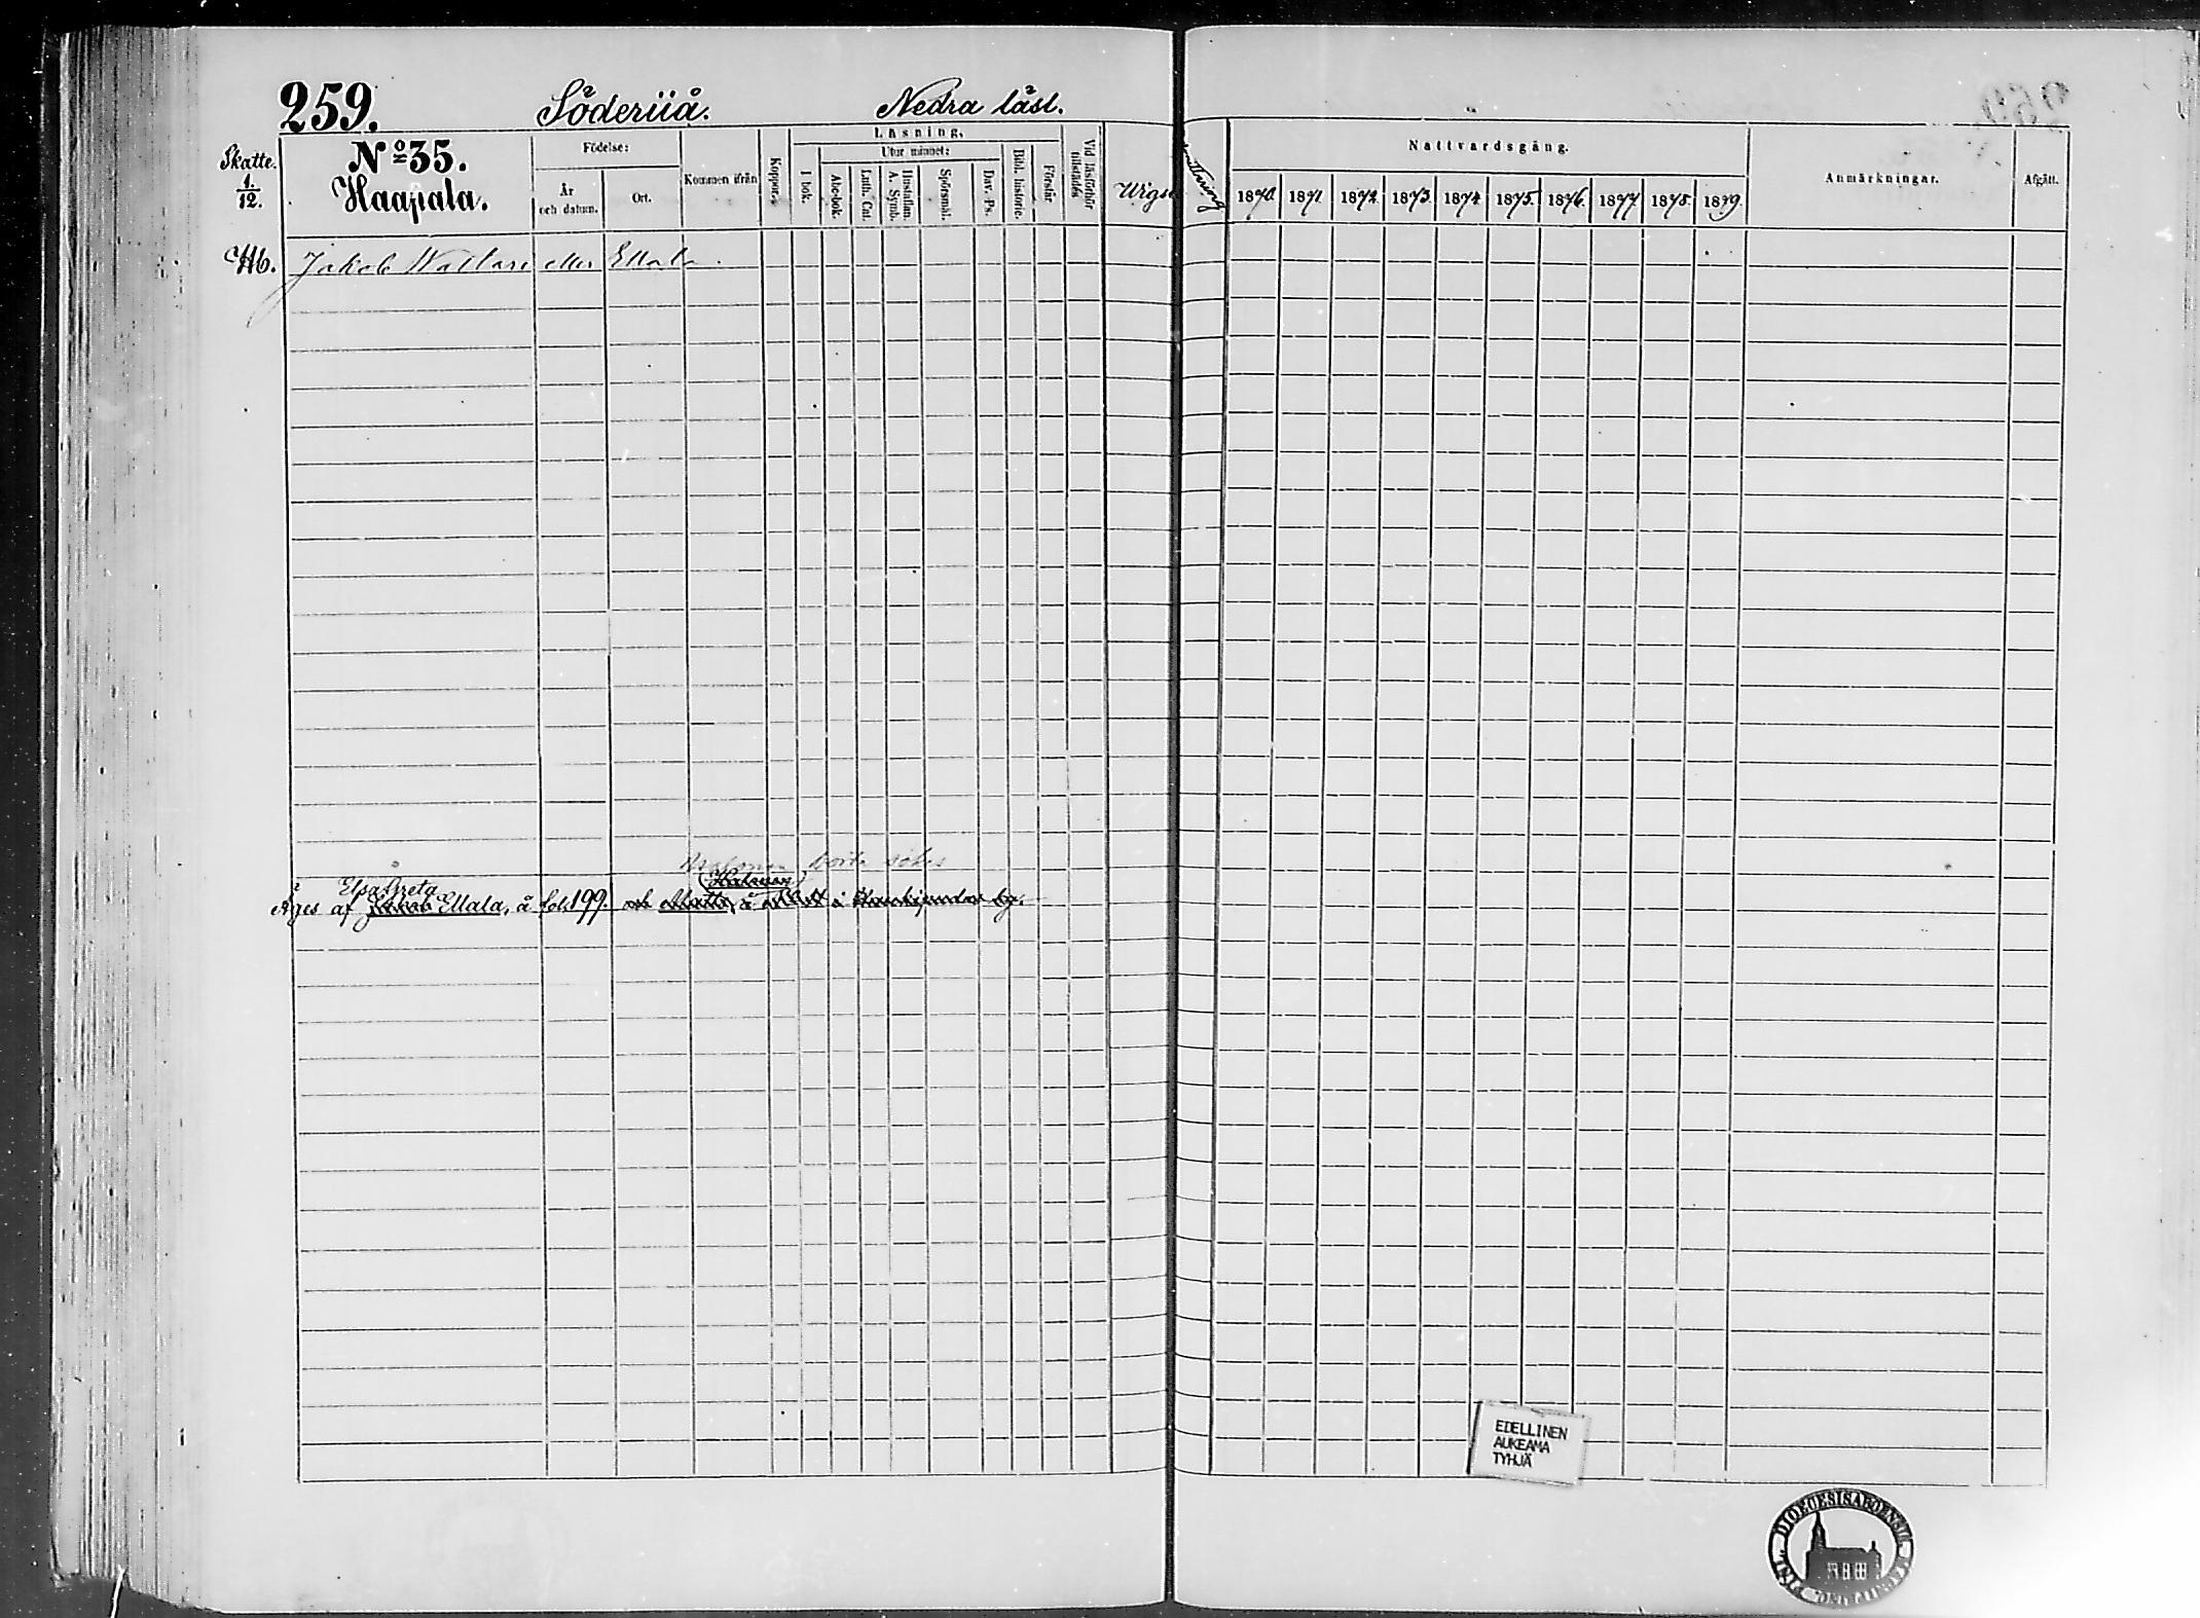 259. Söderiiå. Nedra läsl.
Skatte. 1/12.
No 35.
Haapala.
Födelse:
År och datum.
Ort.
Kommen ifrån
Koppor.
Läsning.
I bok.
Utur minnet:
Abc-bok.
Luth. Cat.
Hustaflan. A. Symb.
Spörsmål.
Dav. Ps.
Bibl. historie.
Förstår.
Vid läsförhör tillstädes
Wigsel
Nattvardsgång.
1870. 1871. 1872. 1873. 1874. 1875. 1876. 1877. 1878. 1879.
Anmärkningar.
Afgått.
Hb. Jakob eller Ellala.
söker
Elsa Greta (Halonen)
Äges af Jakob Ellala, å fol. 199. och Matts, å i by.
EDELLINEN
AUKEAMA
TYHJÄ